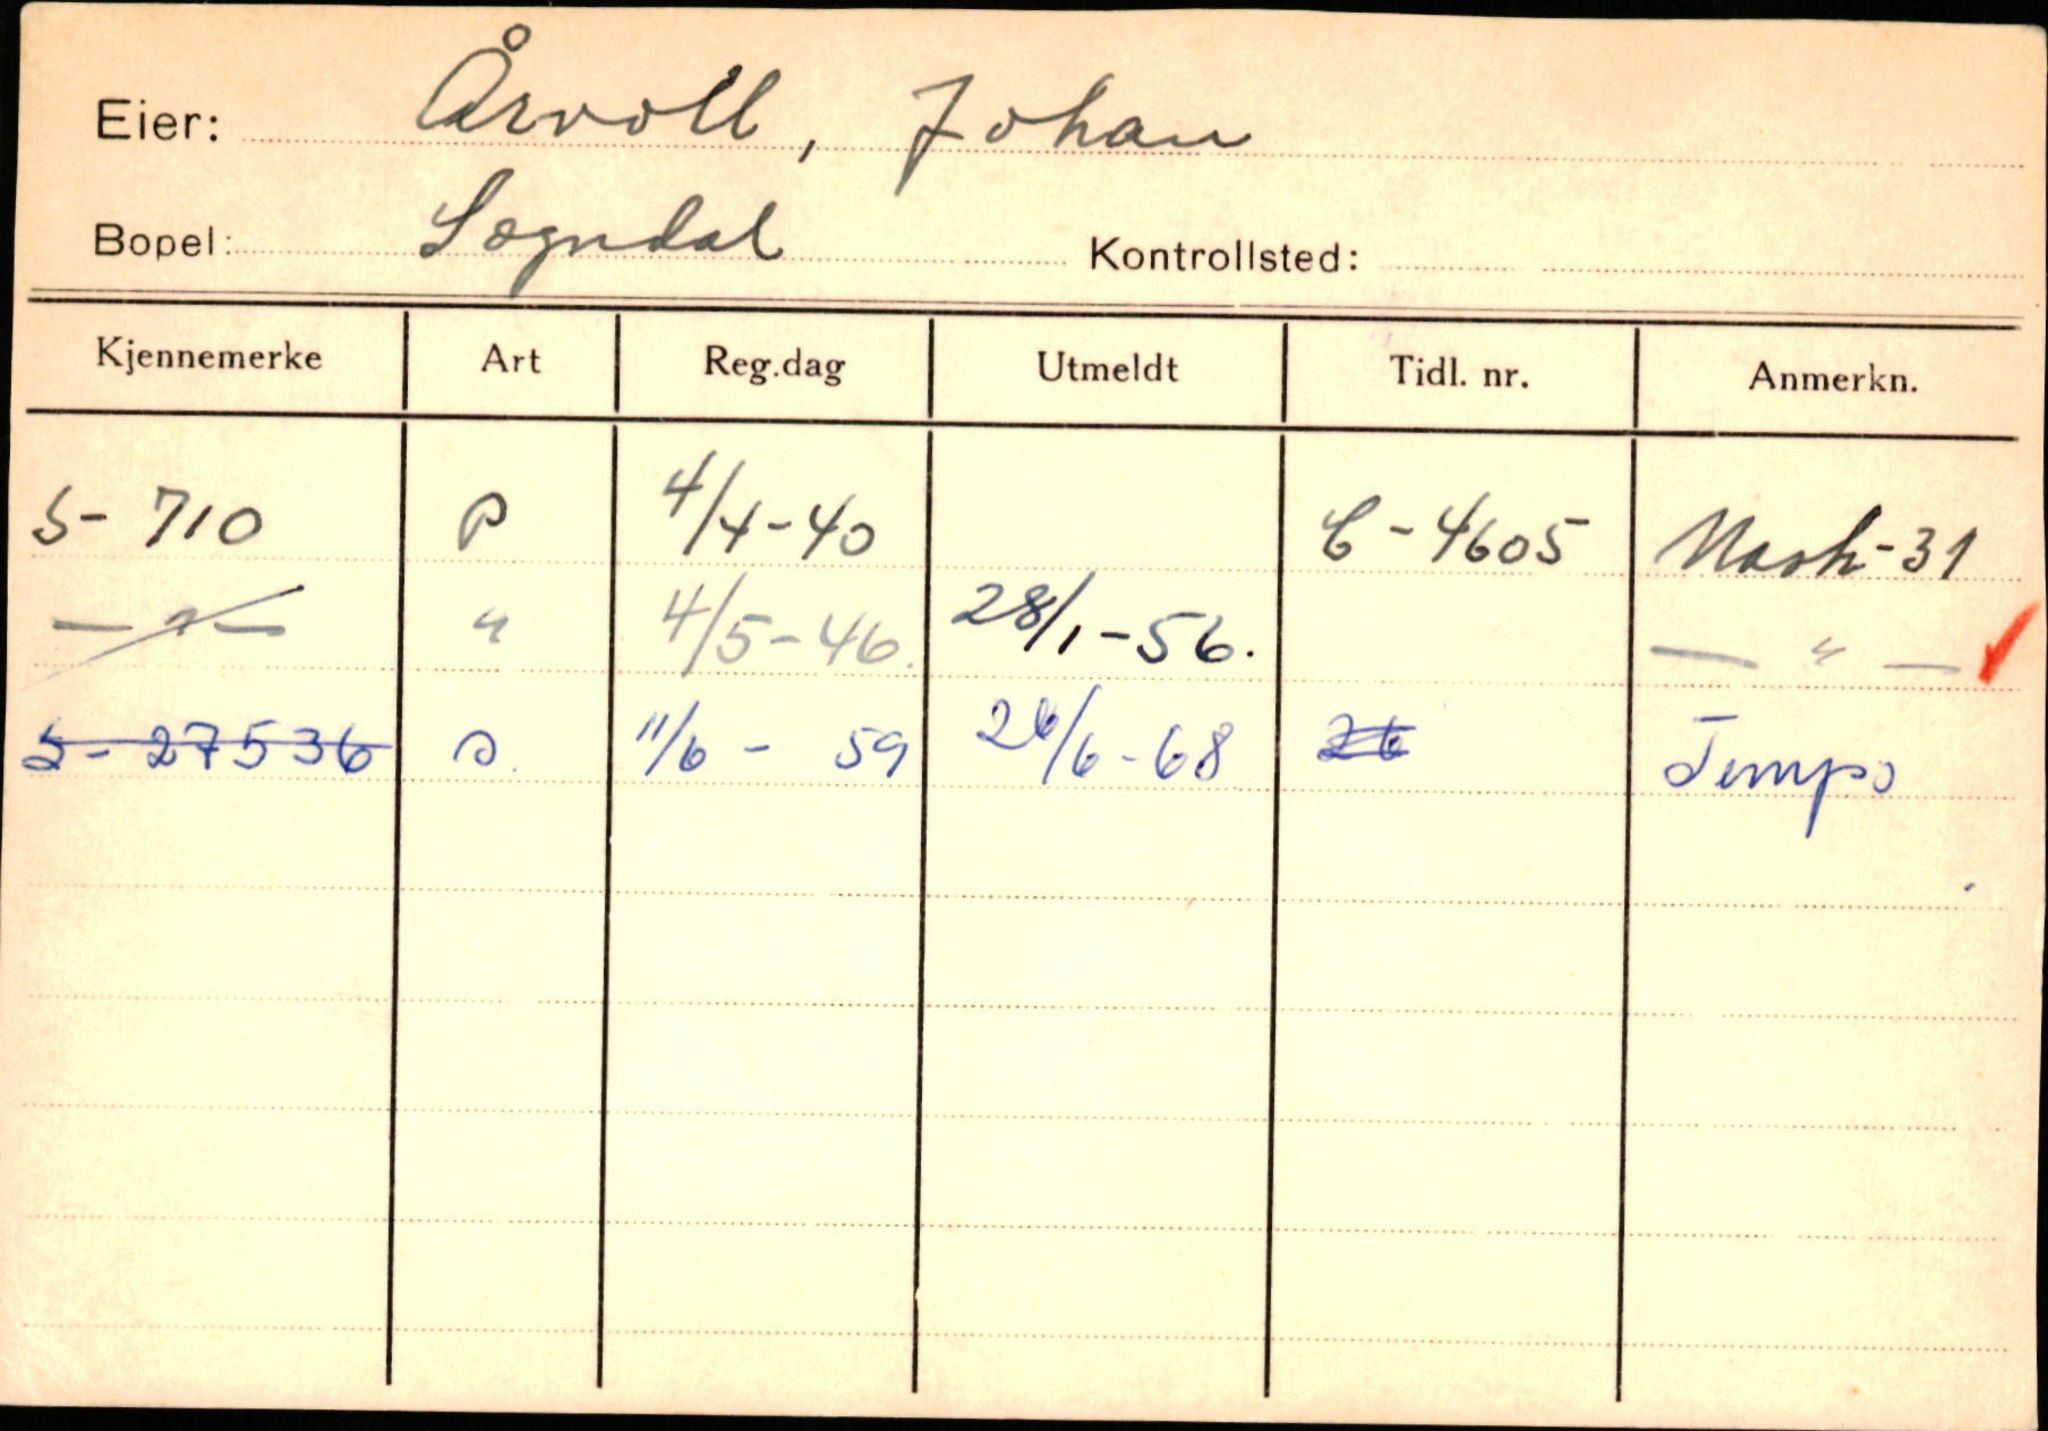 Eier: Årvoll, Johan
Bopel: Sogndal Kontrollsted:
Kjennemerke Art Reg.dag Utmeldt Tidl. nr. Anmerkn.
S- 710 P 4/4-40 C-4605 Nash-31
— " — " 4/5-46. 28/1-56. — " —
S- 27536 11/6 - 59 26/6-68 26 Tempo